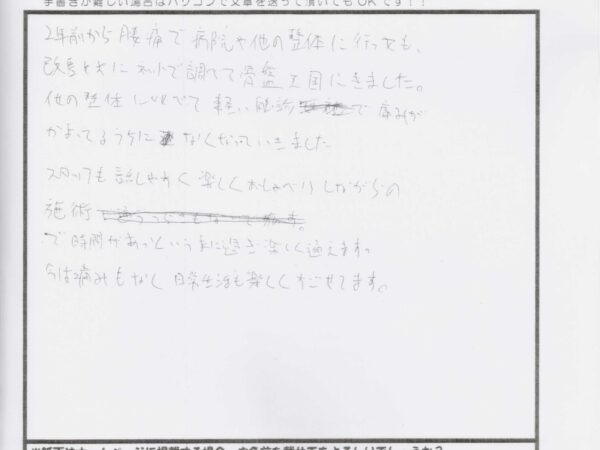 手書きが難しい場合はパソコンで文章を送って頂いてもOKです!!
2年前から腰痛で病院や他の整体に行っても、
改善せずにネットで調べて骨盤王国にきました。
他の整体にくらべて軽い施術で痛みが
かよってるうちになくなっていきました
スタッフも話しやすく楽しくおしゃべりしながらの
施術
で時間があっという間に過ぎ楽しく通えます。
今は痛みもなく日常生活も楽しくすごせてます。